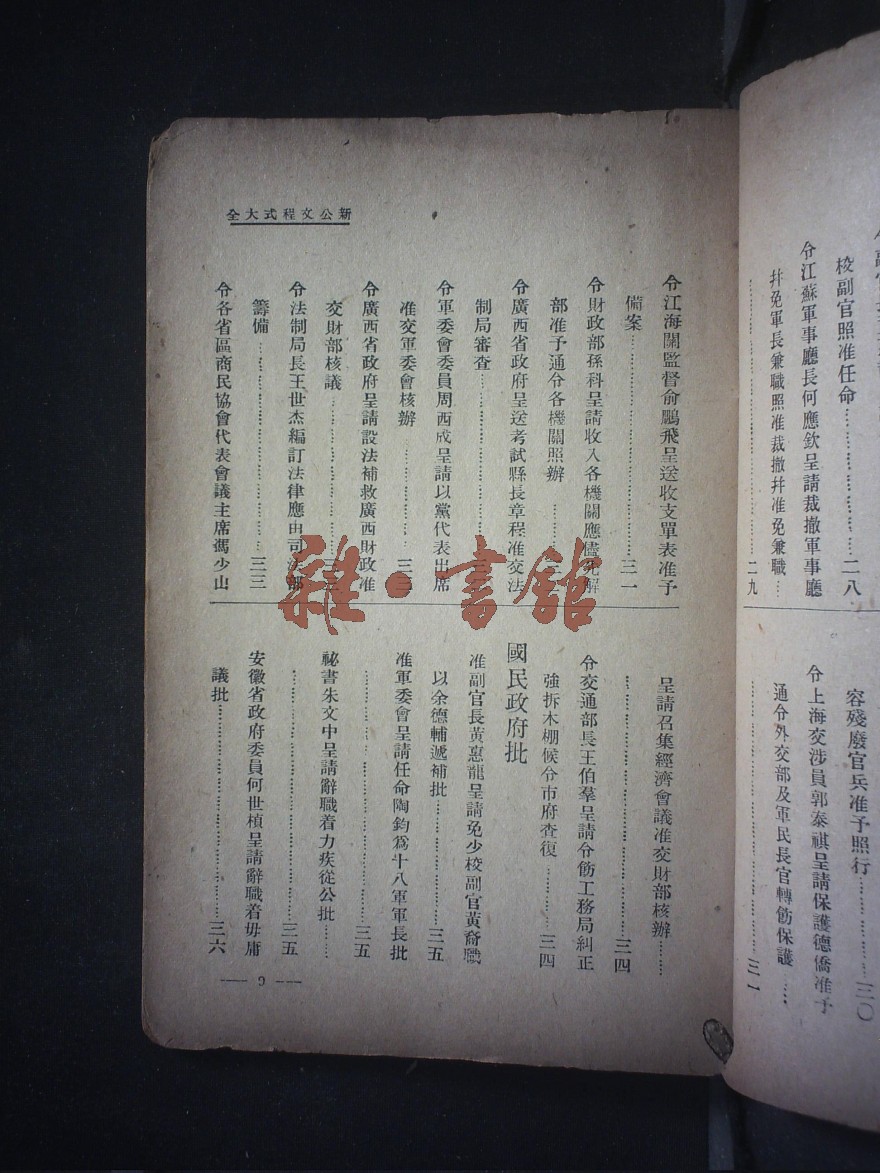 校副官照准任命⋯⋯二八
令江蘇軍事廳長何應欽呈請裁撤軍事廳
幷免軍長兼職照准裁撤幷准免兼職⋯
⋯⋯二九
容殘廢官兵准予照行⋯⋯三〇
令上海交涉員郭泰祺呈請保護德僑准予
通令外交部及軍民長官轉飭保護⋯
⋯⋯三一
新公文程式大全
令江海關監督俞鵬飛呈送收支單表准予
備案⋯⋯三一
令財政部孫科呈請收入各機關應儘先解
部准予通令各機關照辦⋯⋯
令廣西省政府呈送考試縣長章程准交法
制局審查⋯⋯
令軍委會委員周西成呈請以黨代表出席
准交軍委會核辦⋯⋯三
令廣西省政府呈請設法補救廣西財政准
交財部核議⋯⋯
令法制局長王世杰編訂法律應由司法部
籌備⋯⋯三三
令各省區商民協會代表會議主席馮少山
呈請召集經濟會議准交財部核辦⋯⋯
⋯⋯三四
令交通部長王伯羣呈請令飭工務局糾正
強拆木棚候分市府查復⋯⋯三四
國民政府批
准副官長黃惠龍呈請免少校副官黃裔職
以余德輔遞補批⋯⋯三五
准軍委會呈請任命陶鈞爲十八軍軍長批
⋯⋯三五
祕書朱文中呈請辭職着力疾從公批⋯⋯
⋯⋯三五
安徽省政府委員何世楨呈請辭職着毋庸
議批⋯⋯三六
— 9 —
雜·書館